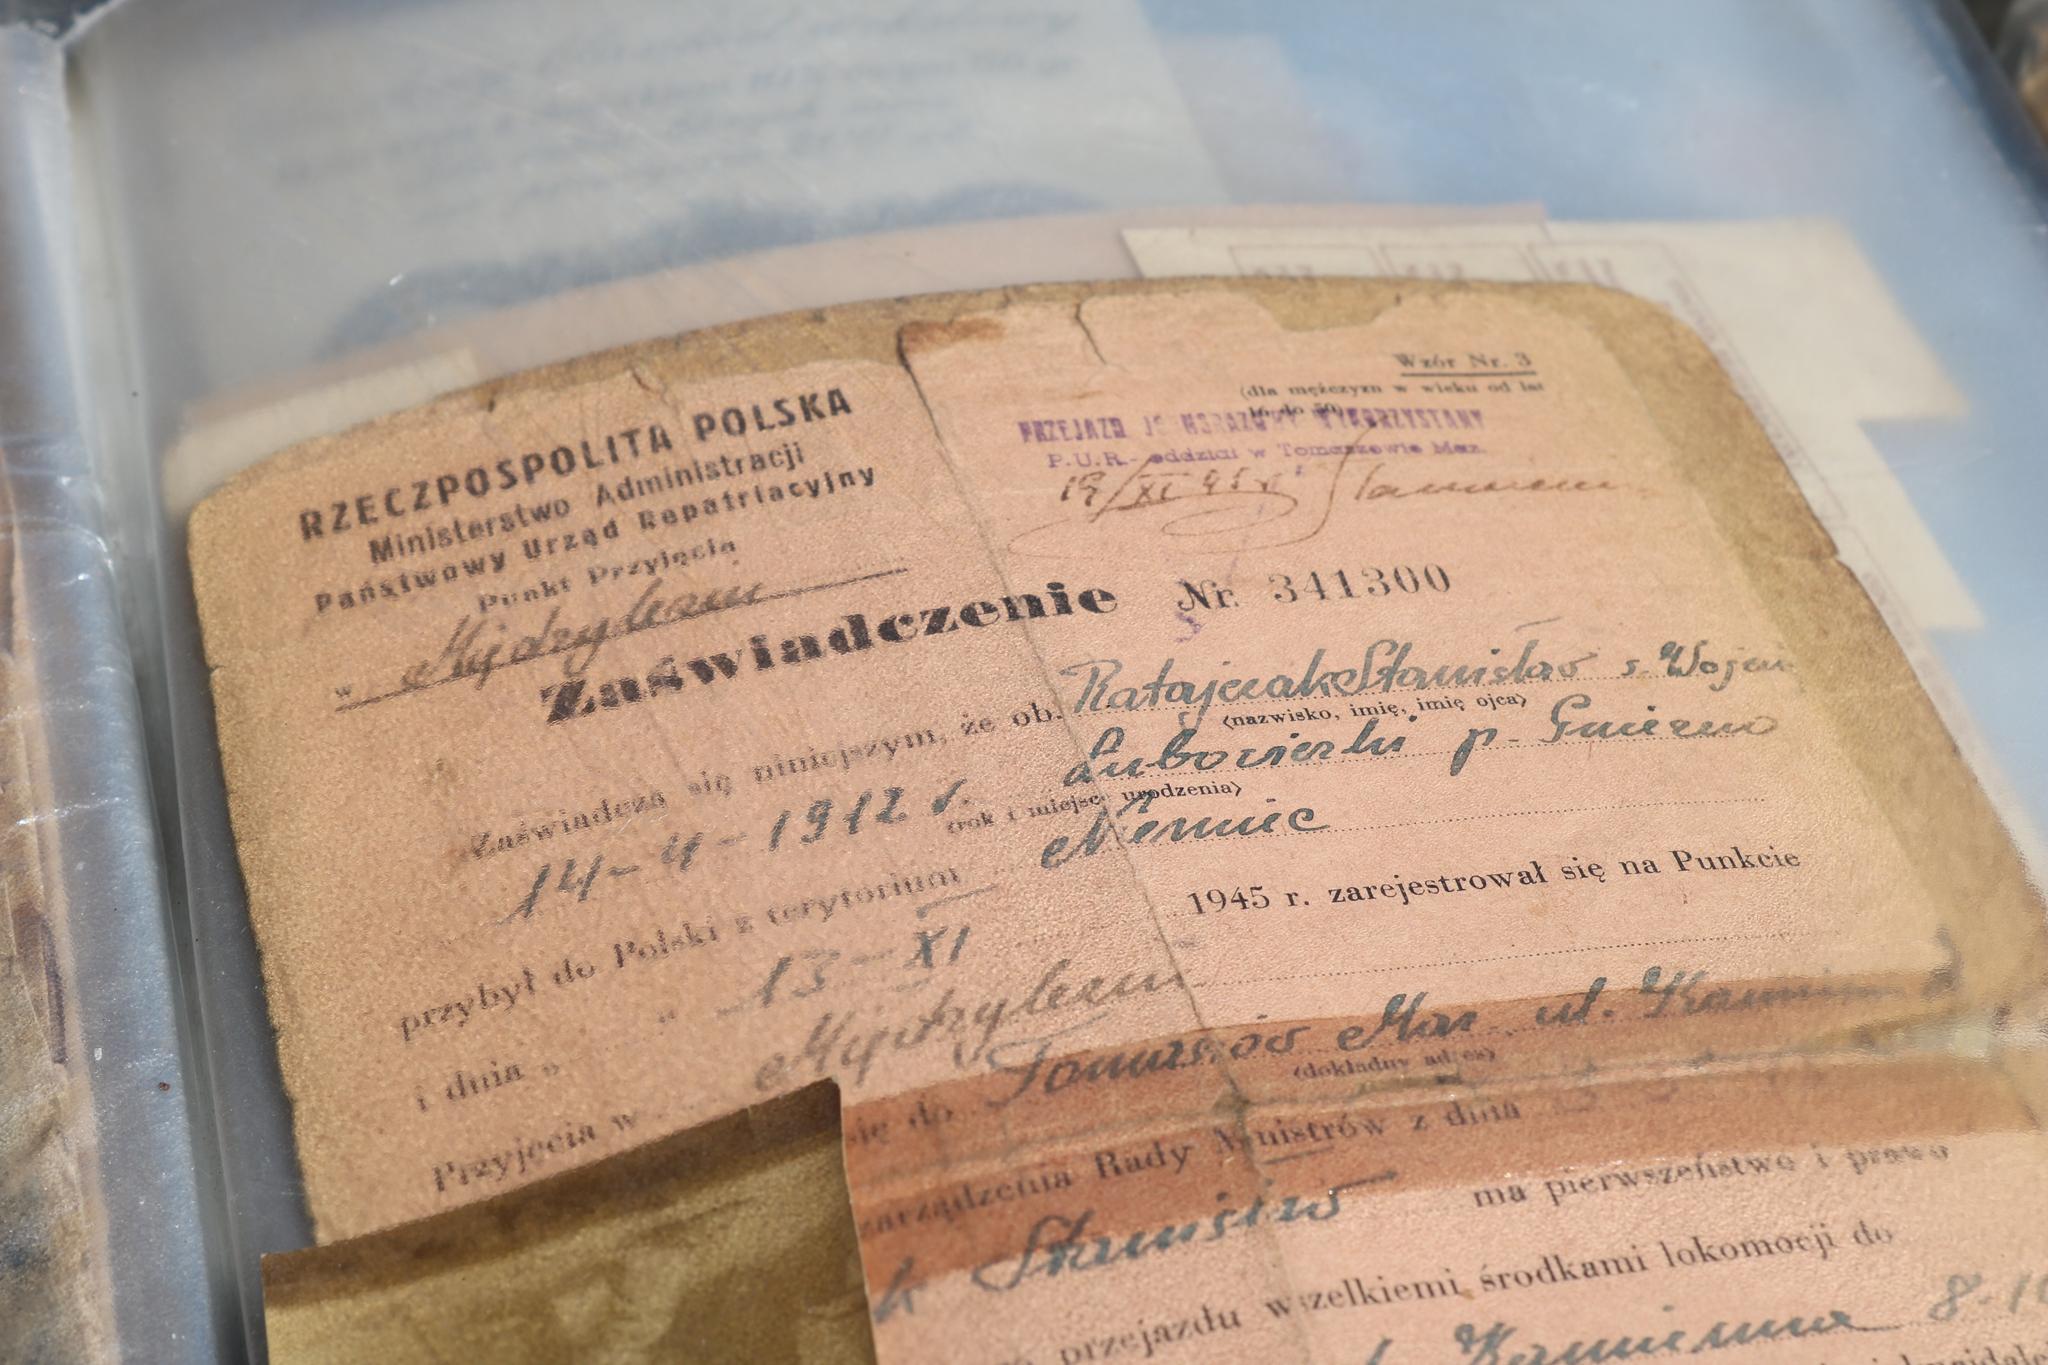 RZECZPOSPOLITA POLSKA
Ministerstwo Administracji
Państwowy Urząd Repatriacyjny
Punkt Przyjęcia
w Międrylesiu
Wzór Nr. 3
(dla mężczyzn w wieku od lat
16 do 50)
PRZEJAZD JEDNORAZOWY WYKORZYSTANY
P.U.R.- oddział w Tomaszowie Maz.
19/XI 45 r.
Zaświadczenie Nr. 341300
Zaświadcza się niniejszym, że ob. Ratajczak Stanisław s. Wojci
(nazwisko, imię, imię ojca)
14-4-1912 r. Lubowiczki p. Gniezno
(rok i miejsce urodzenia)
przybył do Polski z terytorium Niemiec
i dnia „ „ 13-XI 1945 r. zarejestrował się na Punkcie
Przyjęcia w Międrylesiu
się do Tomaszów Maz. ul. Kamienna
(dokładny adres)
zarządzenia Rady Ministrów z dnia
k Stanisław ma pierwszeństwo i prawo
przejazdu wszelkiemi środkami lokomocji do
Kamienna 8-10